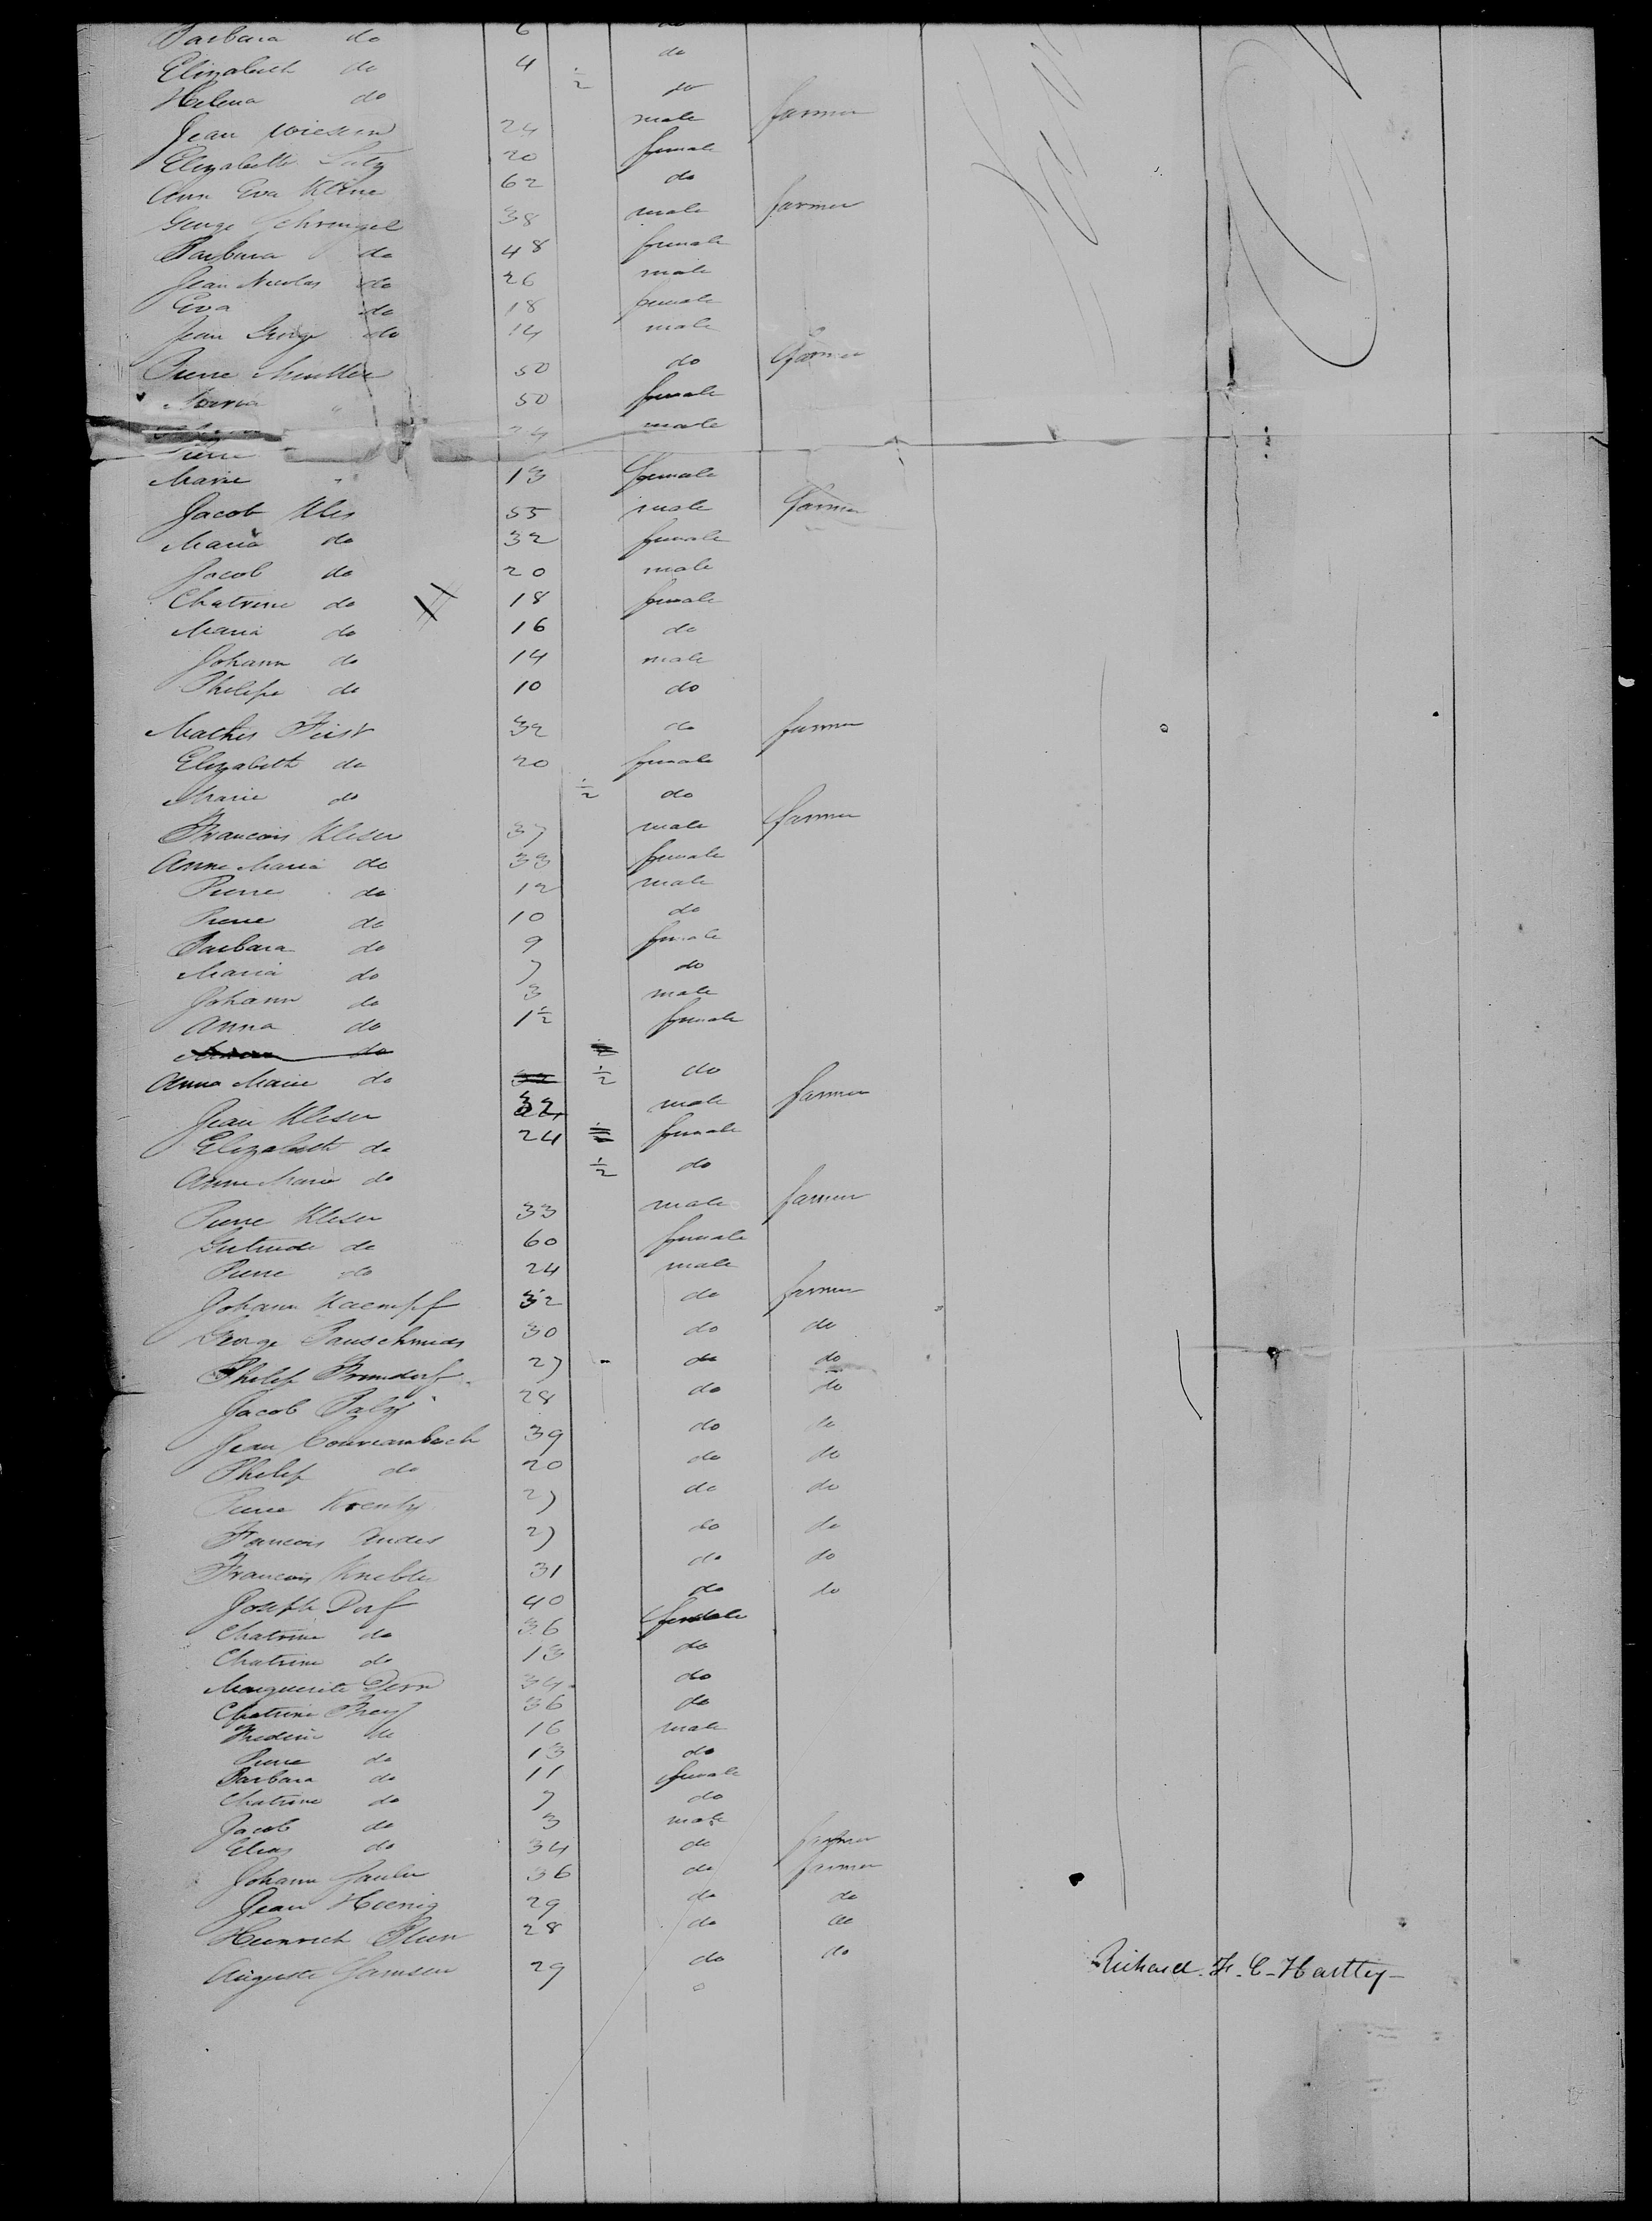 Barbara do 6 do
Elizabeth do 4 do
Helena do 1/2 do
Jean 24 male farmer
Elizabeth 20 female
Ann Eva Kline 62 do
George Schrengel 38 male farmer
Barbara do 48 female
Jean Nicolas do 26 male
Eva do 18 female
Jean George do 14 male
Pierre Muller 50 do farmer
50 female
Pierre 24 male
Marie " 13 female
Jacob Kles 55 male farmer
Maria do 32 female
Jacob do 20 male
Chatrine do 18 female
Maria do 16 do
Johann do 14 male
Philipe do 10 do
Mathis Feist 32 do farmer
Elizabeth do 20 female
Marie do 1/2 do
Francois Kleser 37 male farmer
Anne Maria do 33 female
Pierre do 12 male
Pierre do 10 do
Barbara do 9 female
Maria do 7 do
Johann do 3 male
Anna do 1 1/2 female
do
Anna Marie do 1/2 do
Jean Kleser 32 male farmer
Elizabeth do 24 female
Anne Maria do 1/2 do
Pierre Kleser 33 male farmer
Gertrude do 60 female
Pierre do 24 male
Johann Kaempf 32 do farmer
George 30 do do
Philip 27 do do
Jacob 28 do do
Jean 39 do do
Philip do 20 do do
Pierre Krentz 27 do do
Francois 27 do do
Francois Knebler 31 do do
Joseph Dorf 40 do do
Chatrine do 36 female
Chatrine do 13 do
Marguerite 34 do
Chatrine 36 do
do 16 male
Pierre do 13 do
Barbara do 11 female
Chatrine do 7 do
Jacob do 3 male
Elias do 34 do farmer
Johann 36 do farmer
Jean Hoenig 29 do do
Heinrich 28 do do
Auguste 29 do do
Richard. F. C. Hartley